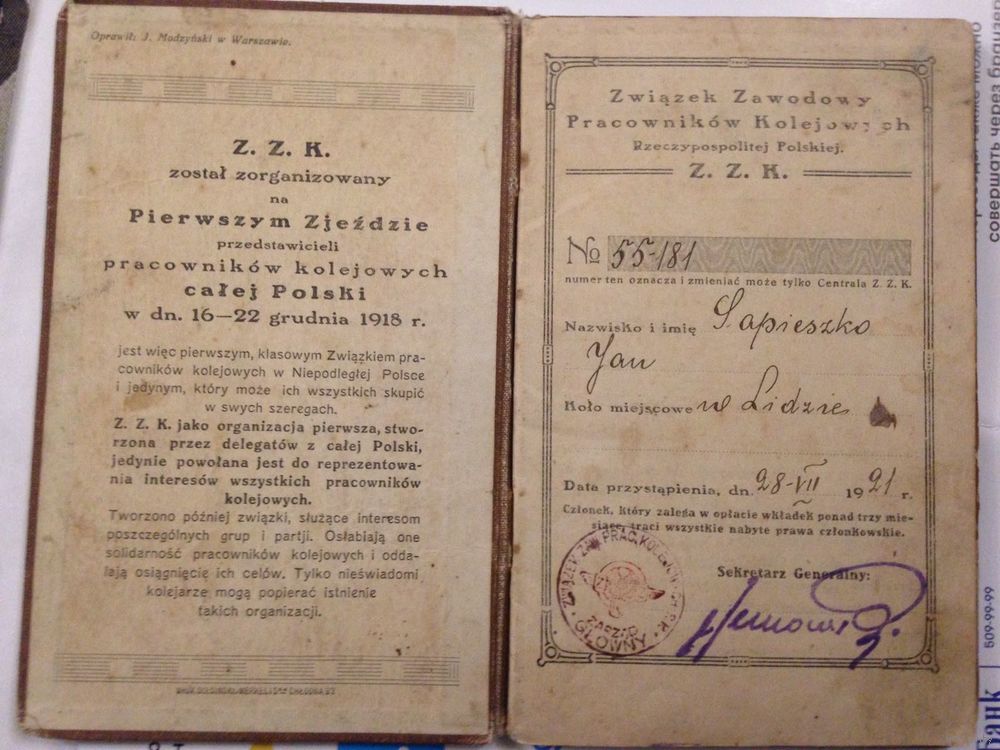 Oprawił: J. Modzyński w Warszawie.
Z. Z. K.
został zorganizowany
na
Pierwszym Zjeździe
przedstawicieli
pracowników kolejowych
całej Polski
w dn. 16—22 grudnia 1918 r.
jest więc pierwszym, klasowym Związkiem pra-
cowników kolejowych w Niepodległej Polsce
i jedynym, który może ich wszystkich skupić
w swych szeregach.
Z. Z. K. jako organizacja pierwsza, stwo-
rzona przez delegatów z całej Polski,
jedynie powołana jest do reprezentowa-
nia interesów wszystkich pracowników
kolejowych.
Tworzono później związki, służące interesom
poszczególnych grup i partji. Osłabiają one
solidarność pracowników kolejowych i odda-
lają osiągnięcie ich celów. Tylko nieświadomi
kolejarze mogą popierać istnienie
takich organizacji.
Związek Zawodowy
Pracowników Kolejowych
Rzeczypospolitej Polskiej.
Z. Z. K.
№ 55-181
numer ten oznacza i zmieniać może tylko Centrala Z. Z. K.
Nazwisko i imię Sapieszko
Jan
Koło miejscowe w Lidzie
Data przystąpienia, dn. 28-VII 1921 r.
Członek, który zalega w opłacie wkładek ponad trzy mie-
siące, traci wszystkie nabyte prawa członkowskie.
Sekretarz Generalny:
ZWIĄZEK ZAW. PRAC. KOLEJOW.
ZARZĄD
GŁÓWNY
совершать через
509-99-99